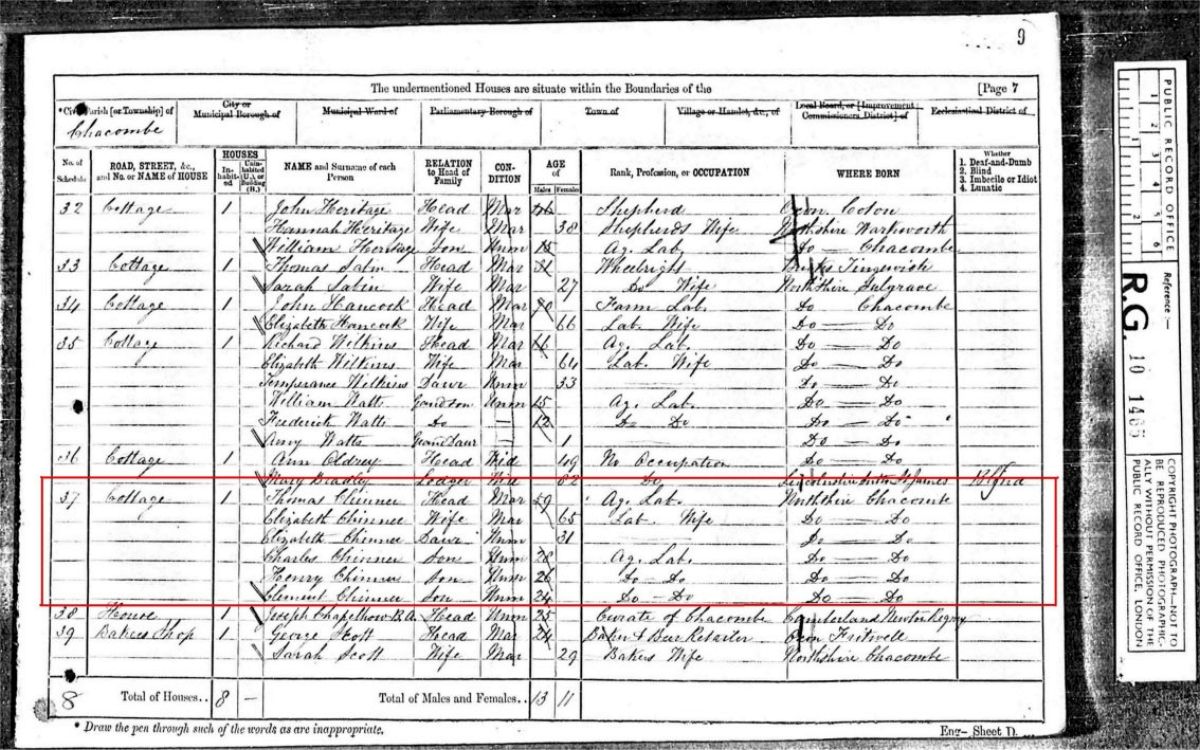 9
The undermentioned Houses are situate within the Boundaries of the [Page 7
*Civil Parish [or Township] of City or Municipal Borough of Municipal Ward of Parliamentary Borough of Town of Village or Hamlet, &c., of Local Board, or [Improvement Commissioners District] of Ecclesiastical District of
Chacombe
No. of Schedule ROAD, STREET, &c., and No. or NAME of HOUSE HOUSES In-habit-ed Unin-habited (U.), or Building (B.) NAME and Surname of each Person RELATION to Head of Family CON-DITION AGE of Males Females Rank, Profession, or OCCUPATION WHERE BORN Whether 1. Deaf-and-Dumb 2. Blind 3. Imbecile or Idiot 4. Lunatic
32 Cottage 1 John Heritage Head Mar Shepherd Oxon
Hannah Heritage Wife Mar 38 Shepherds Wife Northshire Warkworth
William Heritage Son Unm 15 Ag. Lab. Do — Chacombe
33 Cottage 1 Thomas Sabin Head Mar 31 Wheelright Bucks Tingewick
Sarah Sabin Wife Mar 27 Do Wife Northshire Sulgrave
34 Cottage 1 John Hancock Head Mar 70 Farm Lab. Do Chacombe
Elizabeth Hancock Wife Mar 66 Lab. Wife Do — Do
35 Cottage 1 Richard Wilkins Head Mar 66 Ag. Lab. Do — Do
Elizabeth Wilkins Wife Mar 64 Lab. Wife Do — Do
Temperance Wilkins Daur Unm 33 Do — Do
William Watts Grandson Unm 15 Ag. Lab. Do — Do
Frederick Watts Do — 12 Do Do Do — Do
Amy Watts GrandDaur — 1 Do — Do
36 Cottage 1 Ann Head Wid 49 No Occupation Do — Do
Mary Bradley Lodger Wid 82 Do Lincolnshire Blind
37 Cottage 1 Thomas Chinner Head Mar 59 Ag. Lab. Northshire Chacombe
Elizabeth Chinner Wife Mar 65 Lab. Wife Do — Do
Elizabeth Chinner Daur Unm 31 Do — Do
Charles Chinner Son Unm 28 Ag. Lab. Do — Do
Henry Chinner Son Unm 26 Do — Do Do — Do
Clement Chinner Son Unm 24 Do — Do Do — Do
38 House 1 Joseph Chapelhow B.A. Head Unm 25 Curate of Chacombe Cumberland Newton Regny
39 Bakers Shop 1 George Scott Head Mar 24 Baker & Beer Retailer Oxon Fritwell
Sarah Scott Wife Mar 29 Bakers Wife Northshire Chacombe
8 Total of Houses.. 8 — Total of Males and Females.. 13 11
* Draw the pen through such of the words as are inappropriate.
Eng— Sheet D.
PUBLIC RECORD OFFICE
1 2 3 4 5 6
1 2
Reference:—
R.G. 10 1465
COPYRIGHT PHOTOGRAPH—NOT TO
BE REPRODUCED PHOTOGRAPHIC-
ALLY WITHOUT PERMISSION OF THE
PUBLIC RECORD OFFICE, LONDON